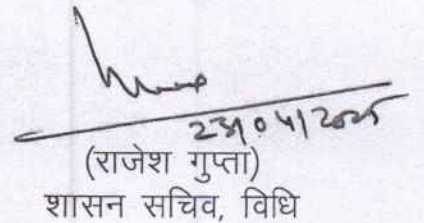 23/04/2025
(राजेश गुप्ता)
शासन सचिव, विधि